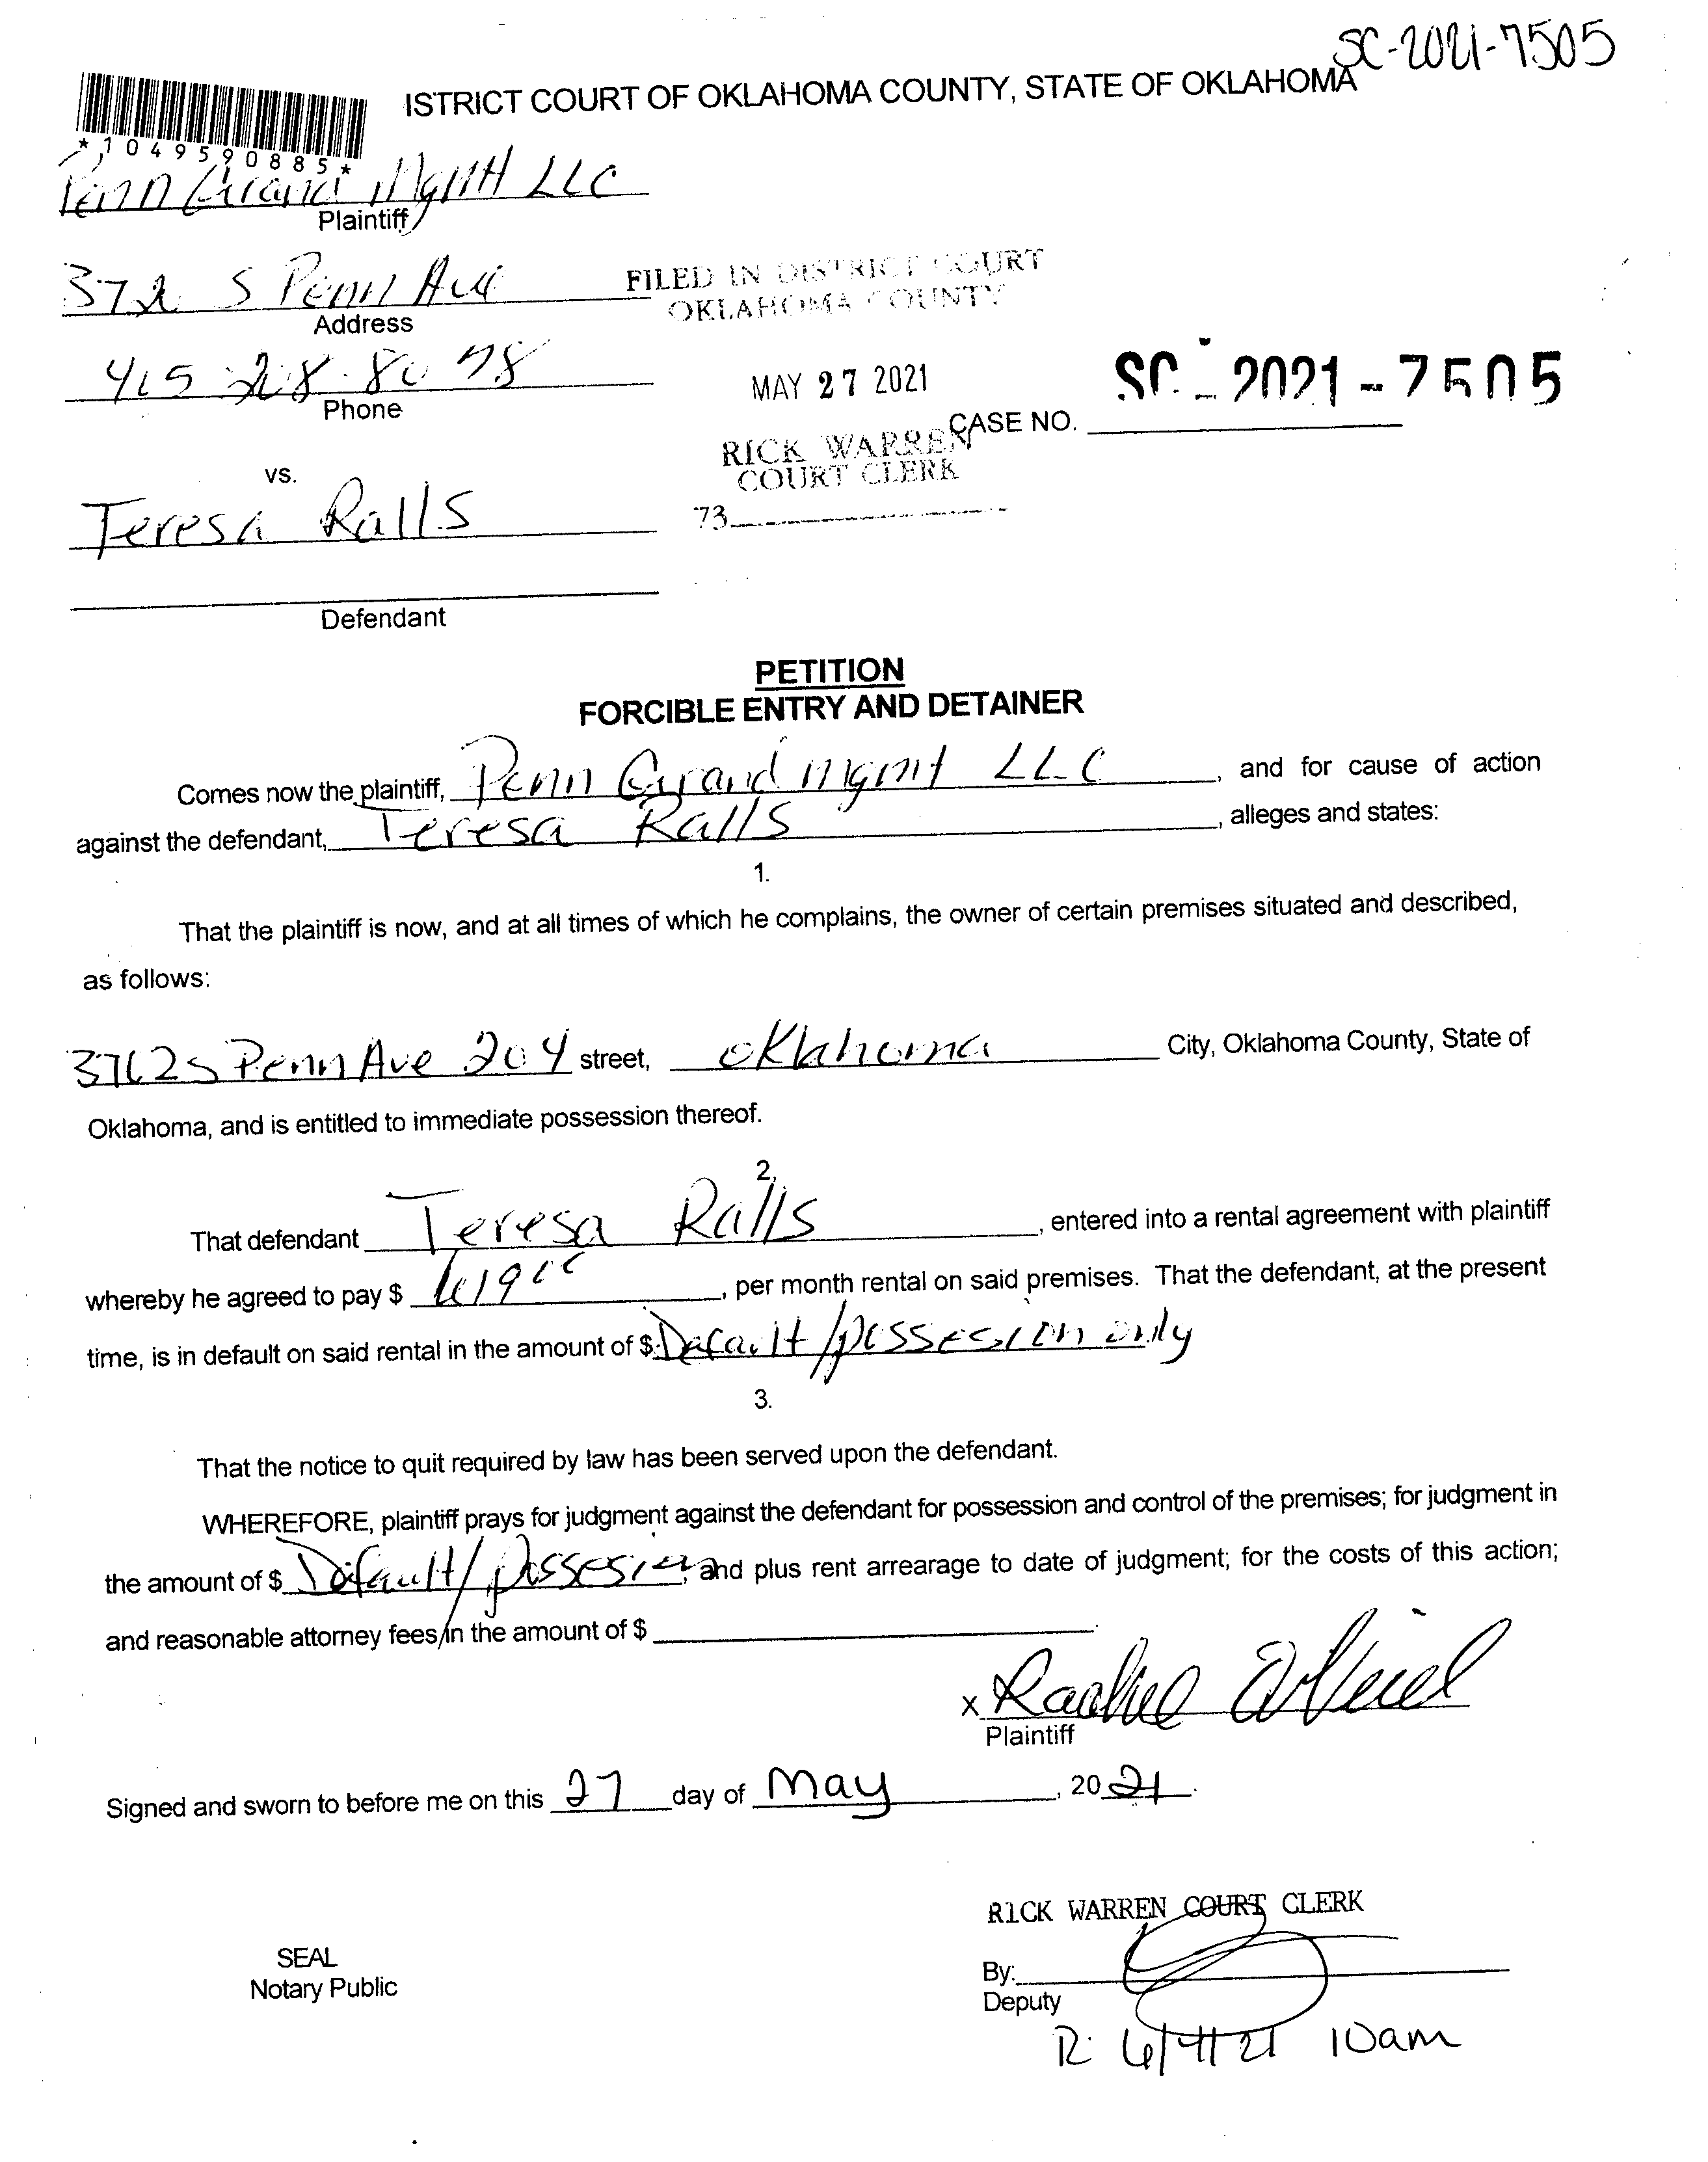 SC-2021-7505
ISTRICT COURT OF OKLAHOMA COUNTY, STATE OF OKLAHOMA
*1049590885*
Penn Grand Mgmt LLC
Plaintiff
S Penn Ave
FILED IN DISTRICT COURT
OKLAHOMA COUNTY
Address
MAY 27 2021
SC - 2021 - 7505
Phone
CASE NO.
RICK WARREN
COURT CLERK
vs.
Teresa Ralls
73
Defendant
PETITION
FORCIBLE ENTRY AND DETAINER
Comes now the plaintiff, Penn Grand Mgmt LLC, and for cause of action
against the defendant, Teresa Ralls, alleges and states:
1.
That the plaintiff is now, and at all times of which he complains, the owner of certain premises situated and described,
as follows:
S Penn Ave 204 street, Oklahoma City, Oklahoma County, State of
Oklahoma, and is entitled to immediate possession thereof.
2.
That defendant Teresa Ralls, entered into a rental agreement with plaintiff
whereby he agreed to pay $, per month rental on said premises. That the defendant, at the present
time, is in default on said rental in the amount of $ Default/possesion only
3.
That the notice to quit required by law has been served upon the defendant.
WHEREFORE, plaintiff prays for judgment against the defendant for possession and control of the premises; for judgment in
the amount of $ Default/possesion, and plus rent arrearage to date of judgment; for the costs of this action;
and reasonable attorney fees in the amount of $
x
Plaintiff
Signed and sworn to before me on this 27 day of May, 2021.
RICK WARREN COURT CLERK
SEAL
Notary Public
By:
Deputy
R: 6/4/21 10am